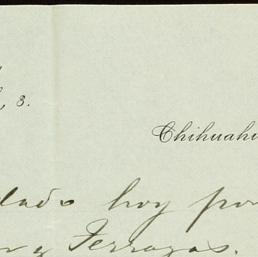 , 3.
Chihuahu
dado hoy por
y Terrazas.